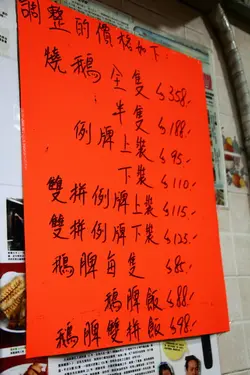 調整的價格如下：
燒鵝全隻 $358.-
半隻 $188.-
例牌上裝 $95.-
下裝 $110.-
雙拼例牌上裝 $115.-
雙拼例牌下裝 $125.-
鵝髀每隻 $85.-
鵝髀飯 $88.-
鵝髀雙拼飯 $98.-